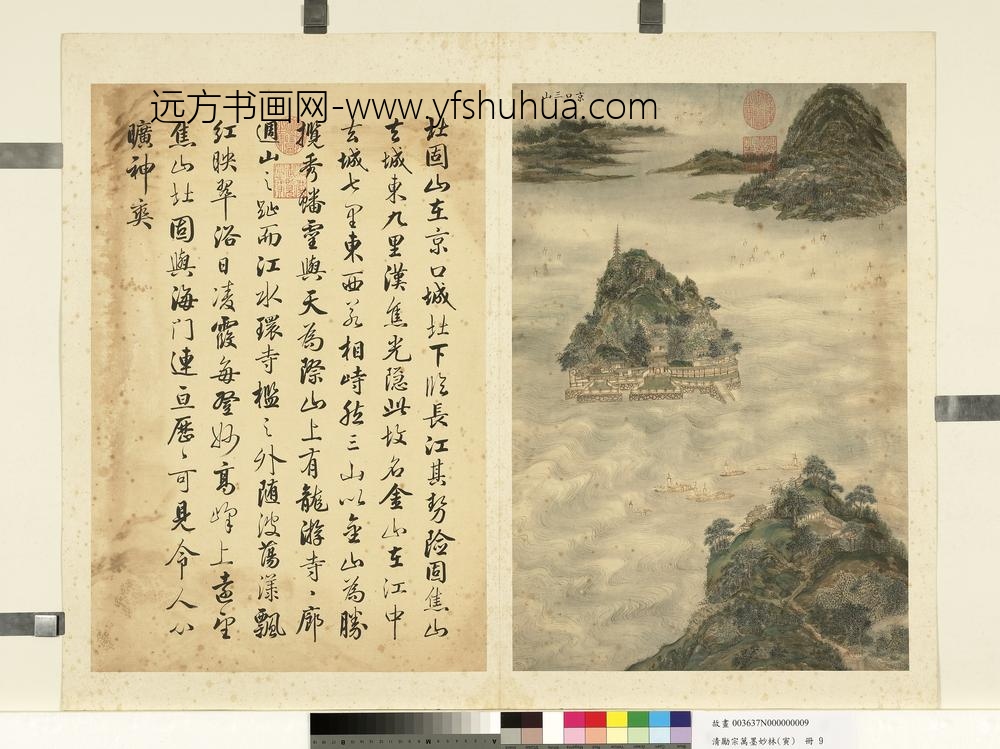 远方书画网-www.yfshuhua.com
京口三山
北固山在京口城北下臨長江其勢險固焦山
去城東九里漢焦光隱此故名金山在江中
去城七里東西相峙然三山以金山為勝
攬秀蟠靈與天為際山上有龍游寺〻廊
週山之趾而江水環寺檻之外隨波蕩漾飄
紅映翠浴日凌霞每登妙高峰上遠望
焦山北固與海门連亘歷〻可見令人心
曠神爽
故畫 003637N000000009
清勵宗萬墨妙林(寅) 冊 9